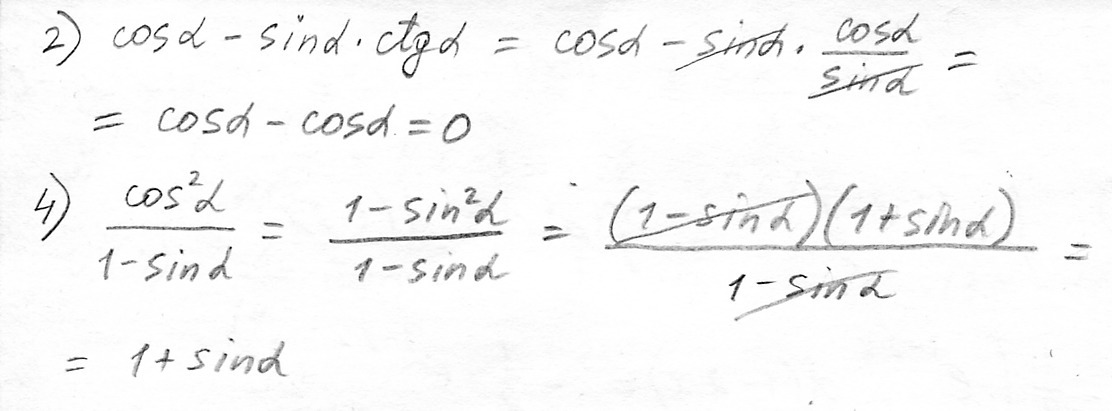 2) cosα - sinα · ctgα = cosα - sinα · cosα/sinα =
= cosα - cosα = 0
4) cos²α/(1-sinα) = (1-sin²α)/(1-sinα) = (1-sinα)(1+sinα)/(1-sinα) =
= 1+sinα